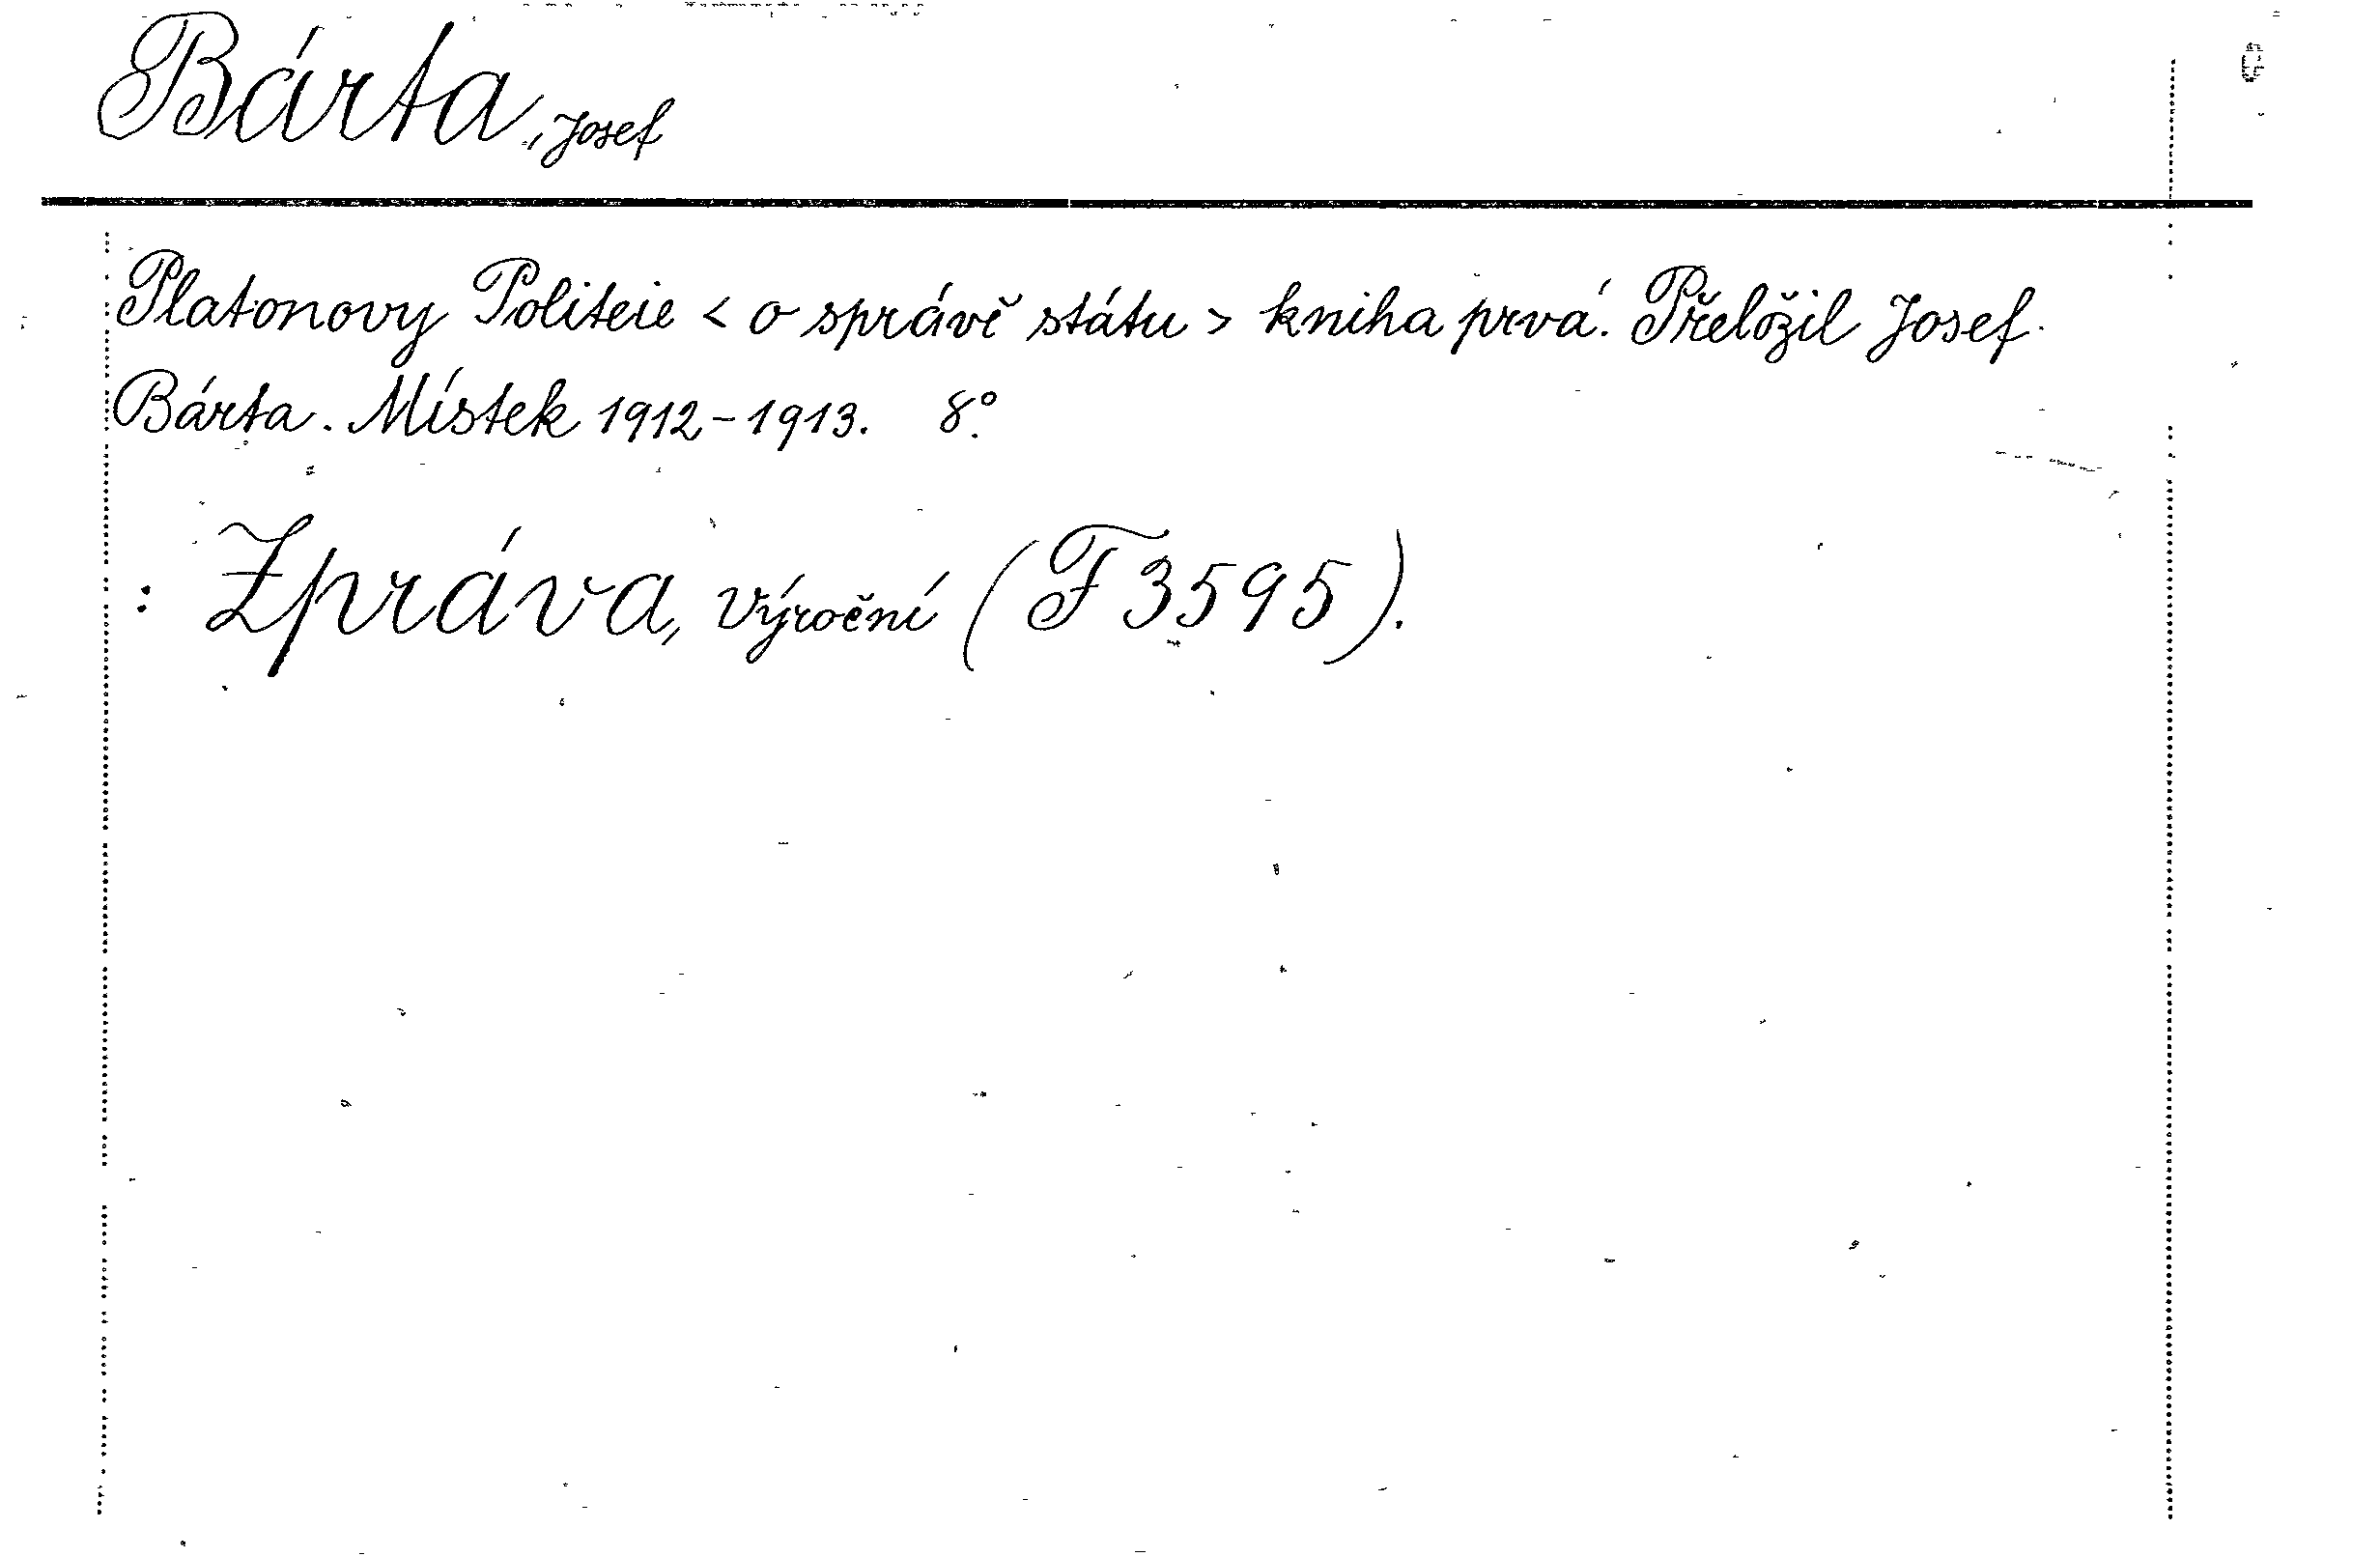 Bárta, Josef
Platonovy Politeie < o správě státu > kniha prvá. Přeložil Josef
Bárta. Místek 1912-1913. 8°.
: Zpráva, výroční (F 3595).